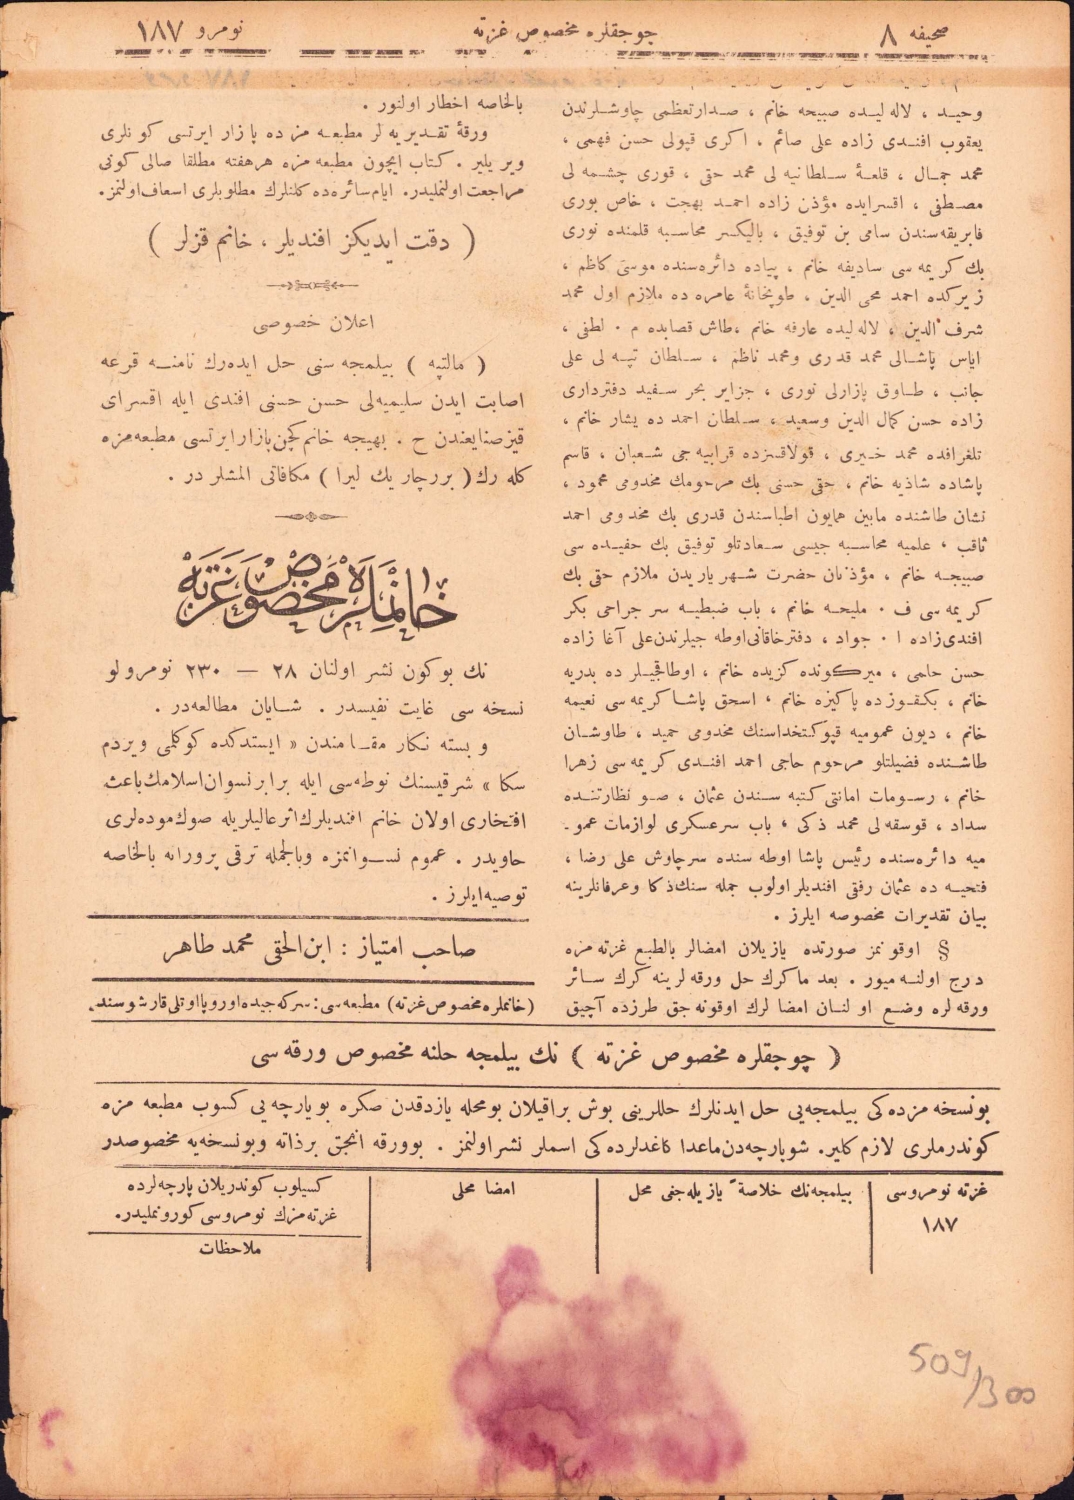 صحیفه ٨
چوجقلره مخصوص غزته
نومرو ١٨٧
وحید ، لاله لیده صبیحه خانم ، صدارتعظمی چاوشلرندن
یعقوب افندی زاده علی صائم ، اکری قپولی حسن فهمی ،
محمد جمال ، قلعهٔ سلطانیه لی محمد حقی ، قوری چشمه لی
مصطفی ، اقسرایده مؤذن زاده احمد بهجت ، خاص بوری
فابریقه سندن سامی بن توفیق ، بالیکسر محاسبه قلمنده نوری
بك كریمه سی سادیفه خانم ، پیاده دائره سنده موسی كاظم ،
زیركده احمد محی الدین ، طوپخانهٔ عامره ده ملازم اول محمد
شرف الدین ، لاله لیده عارفه خانم ، طاش قصابده م . لطفی ،
ایاس پاشالی محمد قدری ومحمد ناظم ، سلطان تپه لی علی
جانب ، طاوق پازارلی نوری ، جزایر بحر سفید دفترداری
زاده حسن كمال الدین وسعید ، سلطان احمد ده یشار خانم ،
تلغرافده محمد خیری ، قولاقسزده قرابیه جی شعبان ، قاسم
پاشاده شاذیه خانم ، حقی حسنی بك مرحومك مخدومی محمود ،
نشان طاشنده مابین همایون اطباسندن قدری بك مخدومی احمد
ثاقب ، علمیه محاسبه جیسی سعادتلو توفیق بك حفیده سی
صبیحه خانم ، مؤذنان حضرت شهریاریدن ملازم حقی بك
كریمه سی ف . ملیحه خانم ، باب ضبطیه سر جراحی بكر
افندی زاده ا . جواد ، دفترخاقانی اوطه جیلرندن علی آغا زاده
حسن حامی ، میركونده كزیده خانم ، اوطاقجیلر ده بدریه
خانم ، بكقوزده پاكیزه خانم ، اسحق پاشا كریمه سی نعیمه
خانم ، دیون عمومیه قپوكتخداسنك مخدومی حمید ، طاوشان
طاشنده فضیلتلو مرحوم حاجی احمد افندی كریمه سی زهرا
خانم ، رسومات امانتی كتبه سندن عثمان ، صو نظارتنده
سداد ، قوسقه لی محمد ذكی ، باب سرعسكری لوازمات عمو-
میه دائره سنده رئیس پاشا اوطه سنده سرچاوش علی رضا ،
فتحیه ده عثمان رفقی افندیلر اولوب جمله سنك ذكا وعرفانلرینه
بیان تقدیرات مخصوصه ایلرز .
§ اوقونمز صورتده یازیلان امضالر بالطبع غزته مزه
درج اولنه میور . بعد ما كرك حل ورقه لرینه كرك سائر
ورقه لره وضع اولنان امضا لرك اوقونه جق طرزده آچیق
بالخاصه اخطار اولنور .
ورقهٔ تقدیریه لر مطبعه مزده پازار ایرتسی كونلری
ویریلیر . كتاب ایچون مطبعه مزه هر هفته مطلقا صالی كونی
مراجعت اولنملیدر . ایام سائره ده كلنلرك مطلوبلری اسعاف اولنمز .
( دقت ایدیكز افندیلر ، خانم قزلر )
اعلان خصوصی
( مالتپه ) بیلمجه سنی حل ایده رك نامنه قرعه
اصابت ایدن سلیمیه لی حسن حسنی افندی ایله اقسرای
قیز صنایعندن ح . بهیجه خانم كچن پازار ایرتسی مطبعه مزه
كله رك ( بررچاریك لیرا ) مكافاتی المشلر در .
خانملره مخصوص غزته
نك بوكون نشر اولنان ٢٨ — ٢٣٠ نومرولو
نسخه سی غایت نفیسدر . شایان مطالعه در .
و بسته نكار مقامندن « ایستدكده كوكلمی ویردم
سكا » شرقیسنك نوطه سی ایله برابر نسوان اسلامك باعث
افتخاری اولان خانم افندیلرك اثر عالیلریله صوك موده لری
حاویدر . عموم نسوانمزه وبالجمله ترقی پرورانه بالخاصه
توصیه ایلرز .
صاحب امتیاز : ابن الحقی محمد طاهر
(خانملره مخصوص غزته) مطبعه سی : سركه جیده اوروپا اوتلی قارشوسنده
( چوجقلره مخصوص غزته ) نك بیلمجه حلنه مخصوص ورقه سی
بونسخه مزده كی بیلمجه یی حل ایدنلرك حللرینی بوش براقیلان بومحله یازدقدن صكره بو پارچه یی كسوب مطبعه مزه
كوندرملری لازم كلیر . شو پارچه دن ماعدا كاغدلرده كی اسملر نشر اولنمز . بو ورقه انجق برذاته وبونسخه یه مخصوصدر
غزته نومروسی
١٨٧
بیلمجه نك خلاصةً یازیله جغی محل
امضا محلی
كسیلوب كوندریلان پارچه لرده
غزته مزك نومروسی كورونملیدر .
ملاحظات
509/300